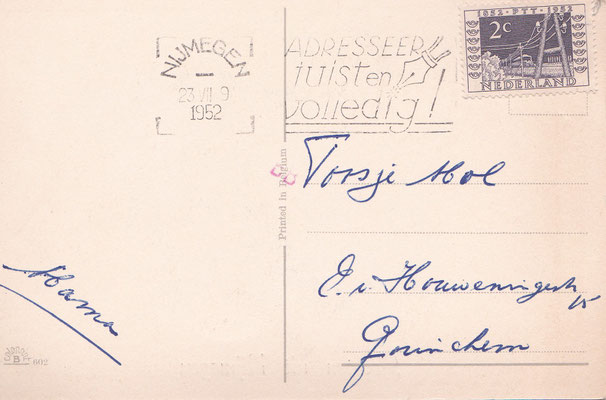 NIJMEGEN
23 VII 9
1952
ADRESSEER
juist en
volledig!
1852 PTT 1952
2c
NEDERLAND
Printed in Belgium
Toosje Mol
E. v. Houweningestr
15
Gorinchem
Mama
B
602